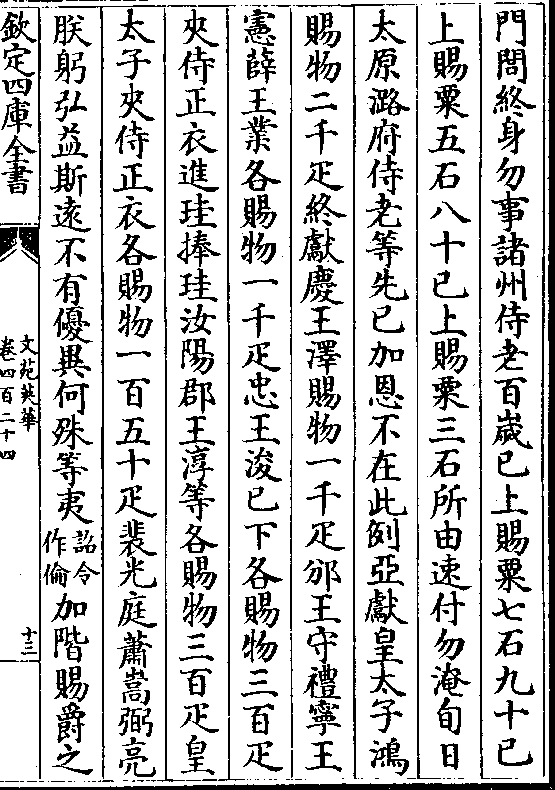 門閭終身勿事諸州侍老百嵗已上賜粟七石九十已
上賜粟五石八十已上賜粟三石所由速付勿淹旬日
太原潞府侍老等先已加恩不在此例亞獻皇太子鴻
賜物二千疋終獻慶王澤賜物一千疋邠王守禮寧王
憲薛王業各賜物一千疋忠王浚已下各賜物三百疋
夾侍正衣進珪捧珪汝陽郡王淳等各賜物三百疋皇
太子夾侍正衣各賜物一百五十疋裴光庭蕭嵩弼亮
朕躬弘益斯遠不有優異何殊等夷詔令作倫加階賜爵之
欽定四庫全書
文苑英華
卷四百二十四
十三